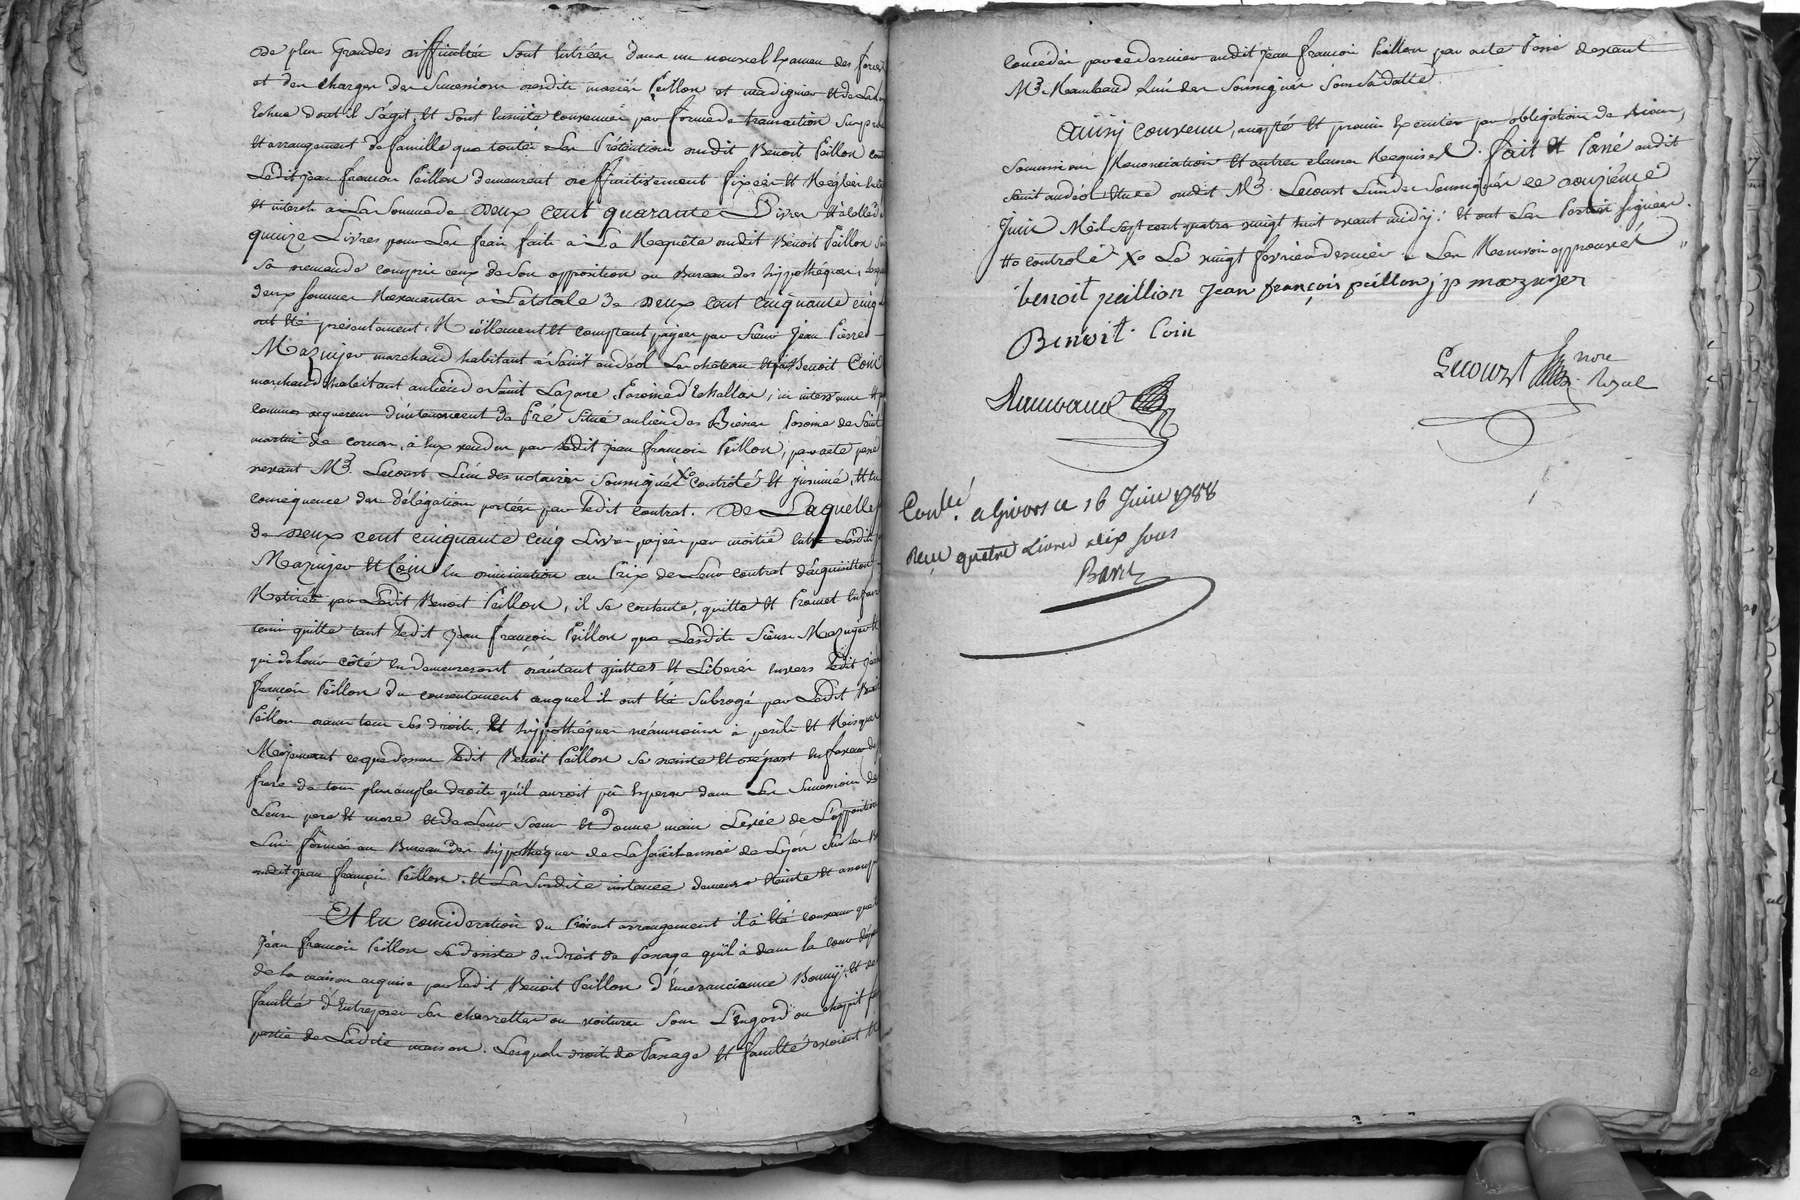 De plus Grandes difficultés sont Entrées dans un nouvel Examen des forces
et des charges des successions desdits mariés Peillon et madignier et de La
Echue dont il s'agit; et sont Ensuite convenues par forme de transaction sur pro
et arrangement de famille que toutes Les Prétentions dudit Benoit Peillon
Ledit jean françois Peillon demeurent deffinitivement fixées et Réglées
et interets à La somme de Deux cent quarante Livres et à celle de
quinze Livres pour Les frais faits à La Requête dudit Benoit Peillon
sa demande compris ceux de son opposition au Bureau des hypothéques, Lesquelles
deux sommes Revenantes à Le totale de deux cent cinquante cinq
ont été présentement Réellement et comptant payées par sieur Jean Pierre
Mazuyer marchand habitant à Saint andéol Le château et par Benoit Coin
marchand habitant au lieu de Saint Lazare Paroisse d'Echallas, ici intervenu
comme acquereur d'un tenement de Pré situé au lieu des Biesses Paroisse de Saint
martin de cornas, à Eux vendu par Ledit jean françois Peillon, par acte passé
devant M.e Lecourt L'un des notaires soussignés Xo controlé et insinué, et en
conséquence des délégations portées par Ledit contrat. De Laquelle
de deux cent cinquante cinq Livres payées par moitié Entre Lesdits
Mazuyer et Coin En diminution du Prix de Leur contrat d'acquisition
Retirée par Ledit Benoit Peillon, il se contente, quitte et Promet En faire
tenir quitte tant Ledit Jean françois Peillon que Lesdits sieurs Mazuyer et
qui de Leur côté En demeureront d'autant quittes et Liberés Envers Ledit jean
françois Peillon du consentement auquel ils ont été subrogé par Ledit Benoit
Peillon dans tous ses droits, Et hypothéques néanmoins à périls et Risques
Moyennant ce que dessus Ledit Benoit Peillon se deviste et départ En faveur de
frere de tous plus amples droits qu'il auroit pû Esperer dans Les successions de
Leurs pere et mere et de Leur Soeur et donne main Levée de L'opposition
Lui formée au Bureau des hypothéques de La sénéchaussée de Lyon sur Les
dudit jean françois Peillon. Et La susdite instance demeure éteinte et
Et En consideration du Présent arrangement il a été convenu que
Jean françois Peillon se désiste du droit de Passage qu'il à dans la cour
de la maison acquise par Ledit Benoit Peillon d'Emeranciane Bonny; et de
faculté d'Entreposer ses charrettes ou voitures sous L'Engard ou chapit
partie de Ladite maison. Lesquels droits de Passage et faculté avoient été
Concédés par ce dernier audit jean françois Peillon par acte Passé devant
M.e Raimbaud L'un des soussignés sous sa datte.
Ainsy convenu, accepté et promis Executer par obligation de biens,
soumissions Renonciation et autres clauses Requises. fait et Passé audit
saint andéol Etude dudit M.e Lecourt L'un des soussignés Le douzième
Juin Mil sept cent quatre vingt huit avant midy: et ont Les Parties signées.
Xo controlé Le vingt fevrier dernier Les Renvois approuvés
benoit peillion Jean françois peillon j p mazuyer
Benoit Coin
Raimbaud Lecourt nore Royal
Conlé. a Givors ce 16 Juin 1788
Reçu quatre Livres dix sous